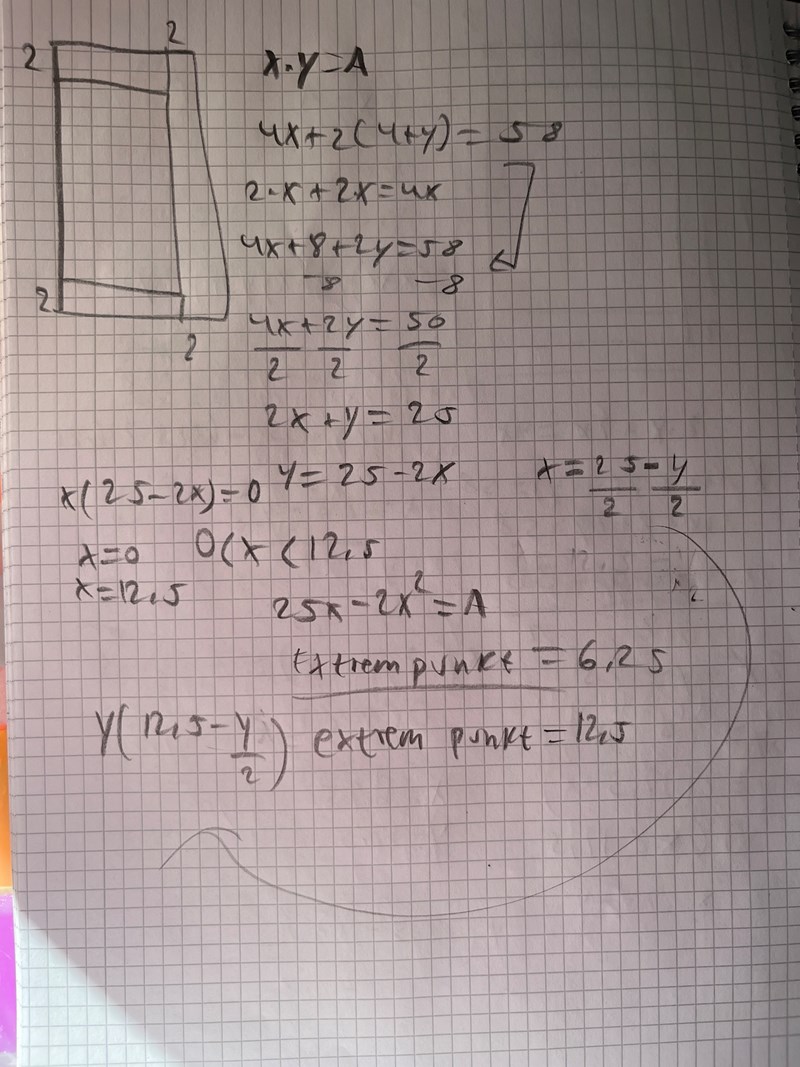 2
2
x·y=A
4x+2(4+y)=58
2·x+2x=4x
4x+8+2y=58
-8 -8
2
2
4x+2y=50
2 2 2
2x+y=25
x(25-2x)=0 y=25-2x x=25-y
2 2
x=0 0<x<12,5
x=12,5
25x-2x²=A
Extrempunkt=6,25
y(12,5-y/2) extrem punkt=12,5